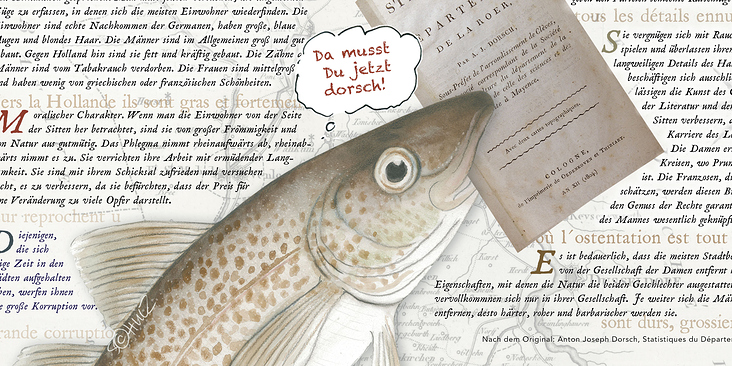 üge zu erfassen, in denen sich die meisten Einwohner wiederfinden. Die
inwohner sind echte Nachkommen der Germanen, haben große, blaue
Augen und blondes Haar. Die Männer sind im Allgemeinen groß und gut
baut. Gegen Holland hin sind sie fett und kräftig gebaut. Die Zähne
Männer sind vom Tabakrauch verdorben. Die Frauen sind mittelgroß
nd haben wenig von griechischen oder französischen Schönheiten.
ers la Hollande ils sont gras et fortement
Moralischer Charakter. Wenn man die Einwohner von der Seite
der Sitten her betrachtet, sind sie von großer Frömmigkeit und
on Natur aus gutmütig. Das Phlegma nimmt rheinaufwärts ab, rheinab-
wärts nimmt es zu. Sie verrichten ihre Arbeit mit ermüdender Lang-
mkeit. Sie sind mit ihrem Schicksal zufrieden und versuchen
cht, es zu verbessern, da sie befürchten, dass der Preis für
ne Veränderung zu viele Opfer darstellt.
ur reprochent u
Diejenigen,
die sich
ige Zeit in den
ädten aufgehalten
ben, werfen ihnen
e große Korruption vor.
rande corruptio
©HillZ
Da musst
Du jetzt
dorsch!
DÉPARTE
DE LA ROER,
PAR A. J. DORSCH,
Sous-Préfet de l'arrondissement de Clèves,
correspondant de la société
du département de la
des sciences et des
à Mayence.
Avec deux cartes topographiques.
COLOGNE,
de l'imprimerie de Oedenkoven et Thiriart.
AN XII (1804)
tous les détails ennu
Sie vergnügen sich mit Rauc
spielen und überlassen ihren
langweiligen Details des Hau
beschäftigen sich ausschließ
lässigen die Kunst des G
der Literatur und der
Sitten verbessern, a
Karriere des L
Die Damen ers
Kreisen, wo Prun
ist. Die Franzosen, di
schätzen, werden diesen Bi
den Genuss der Rechte garanti
des Mannes wesentlich geknüpf
ou l'ostentation est tout
Es ist bedauerlich, dass die meisten Stadtbe
von der Gesellschaft der Damen entfernt
Eigenschaften, mit denen die Natur die beiden Geschlechter ausgestattet
vervollkommnen sich nur in ihrer Gesellschaft. Je weiter sich die Män
entfernen, desto härter, roher und barbarischer werden sie.
sont durs, grossier
Nach dem Original: Anton Joseph Dorsch, Statistiques du Départe